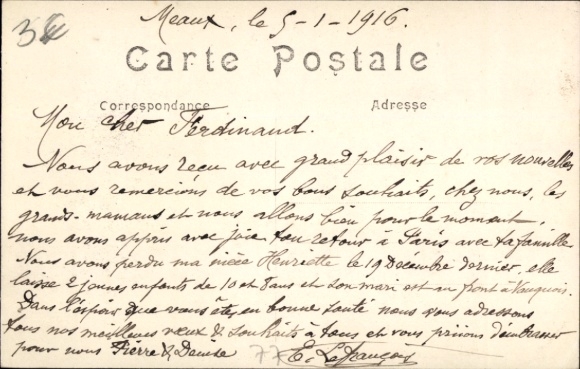 38
Meaux, le 5-1-1916.
Carte Postale
Correspondance Adresse
Mon cher Ferdinand.
Nous avons reçu avec grand plaisir de vos nouvelles
et vous remercions de vos bons souhaits, chez nous, les
grands-mamans et nous allons bien pour le moment,
nous avons appris avec joie ton retour à Paris avec ta famille
Nous avons perdu ma nièce Henriette le 19 Décembre dernier, elle
laisse 2 jeunes enfants de 10 et 8 ans et son mari est au front à Vauquois.
Dans l'espoir que vous êtes en bonne santé nous vous adressons
tous nos meilleurs vœux & souhaits à tous et vous prions d'embrasser
pour nous Pierre & Denise
77 E. Lefrançois